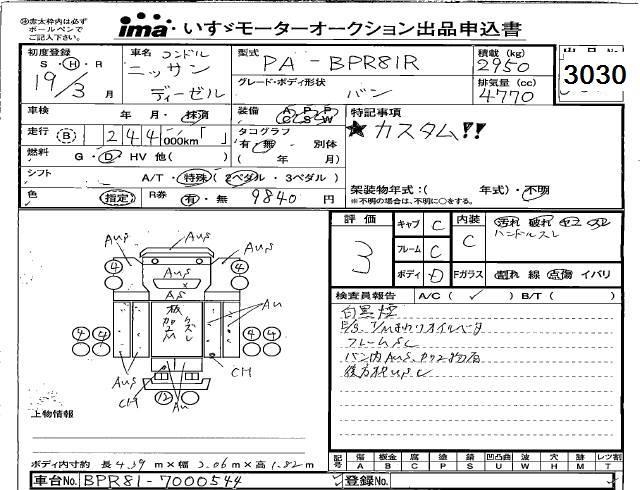 ※赤太枠内は必ず
ボールペンで
ご記入下さい。
ima いすゞモーターオークション出品申込書
初度登録 車名 コンドル 型式 PA-BPR81R 積載 (kg) 2950
S・H・R 19/3 月 ニッサンディーゼル グレード・ボディ形状 バン 排気量 (cc) 4770
3030
車検 年 月・抹消 装備 AC PS PW 特記事項
走行 B 244,000km タコグラフ ★カスタム!!
有・無 別体
燃料 G・D・HV 他( ) ( 年 月)
シフト A/T・特殊(2ペダル・3ペダル) 架装物年式:( 年式)・不明
色 指定 R券 有・無 9840 円 ※不明の場合は、不明に○をする。
評価 3 キャブ C 内装 C 汚れ 破れ
ハンドルスレ
フレーム C
ボディ D Fガラス 割れ 線 点傷 イバリ
検査員報告 A/C( ✓ ) B/T( )
白黒煙
AUS AUS
4 4
AUS
AS
板加工M
AU
4 4 4 4
AUS CH
CH 12 AU
上物情報
ボディ内寸約 長 4.39 m×幅 2.06 m×高 1.82 m
記号 傷 板金 腐 塗 錆 凹凸曲 波 穴 跡 レツ割
A B C P S U W H M T
車台No. BPR81-7000544 登録No.